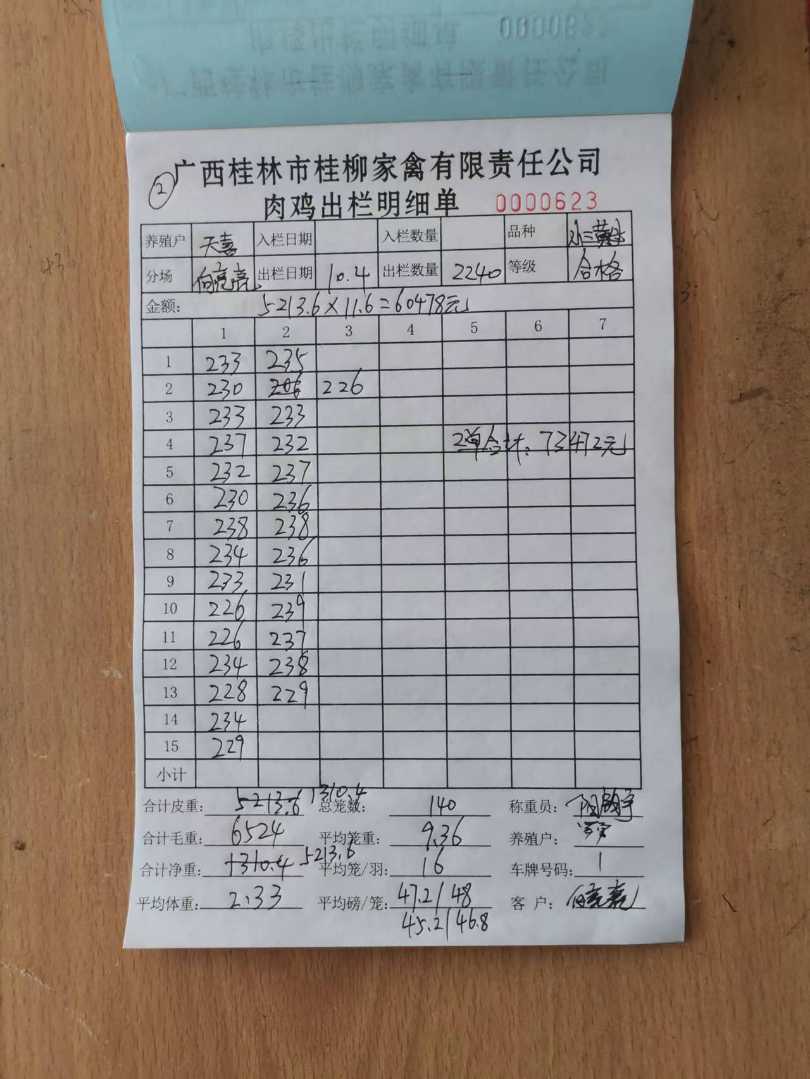 ② 广西桂林市桂柳家禽有限责任公司
肉鸡出栏明细单 0000623
养殖户 天喜 入栏日期 入栏数量 品种
分场 向亮亮 出栏日期 10.4 出栏数量 2240 等级 合格
金额: 5213.6×11.6=60478元
1 2 3 4 5 6 7
1 233 235
2 230 226
3 233 233
4 237 232 2单合计:73472元
5 232 237
6 230 236
7 238 238
8 234 236
9 233 231
10 226 239
11 226 237
12 234 238
13 228 229
14 234
15 229
小计
合计皮重: 5213.6 1310.4 总笼数: 140 称重员:
合计毛重: 6524 平均笼重: 9.36 养殖户:
合计净重: 1310.4 5213.6 平均笼/羽: 16 车牌号码: 1
平均体重: 2.33 平均磅/笼: 47.2/48 客户: 向亮亮
45.2/46.8